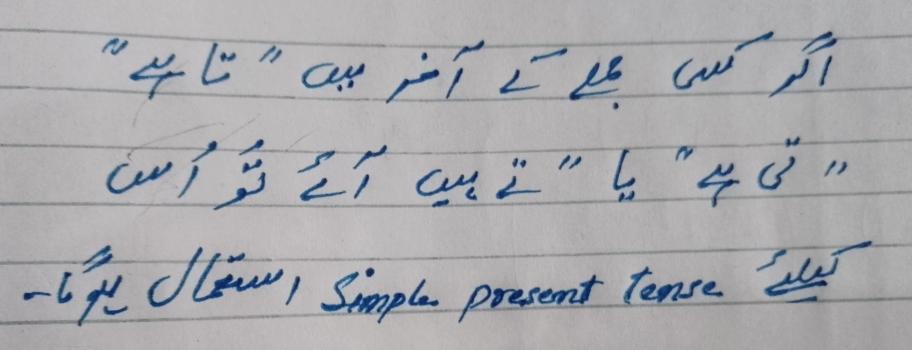 اگر کسی جملے کے آخر میں "تا ہے"
"تی ہے" یا "تے ہیں آئے تُو اُس
کیلئے Simple present tense استعمال ہوگا۔